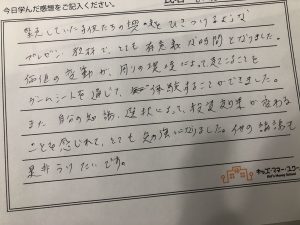 今日学んだ感想をご記入ください。
緊張していた子供たちの興味をひきつけるような
プレゼン、教材で、とても有意義な時間となりました。
価値の変動が、周りの環境によって起こることを
ゲームシートを通じて、体験することができました。
また、自分の知識、選択によって、投資効果が変わる
ことも感じれて、とても勉強になりました。他の講議も
是非うけたいです。
キッズ・マネー・スクール
Kid's Money School